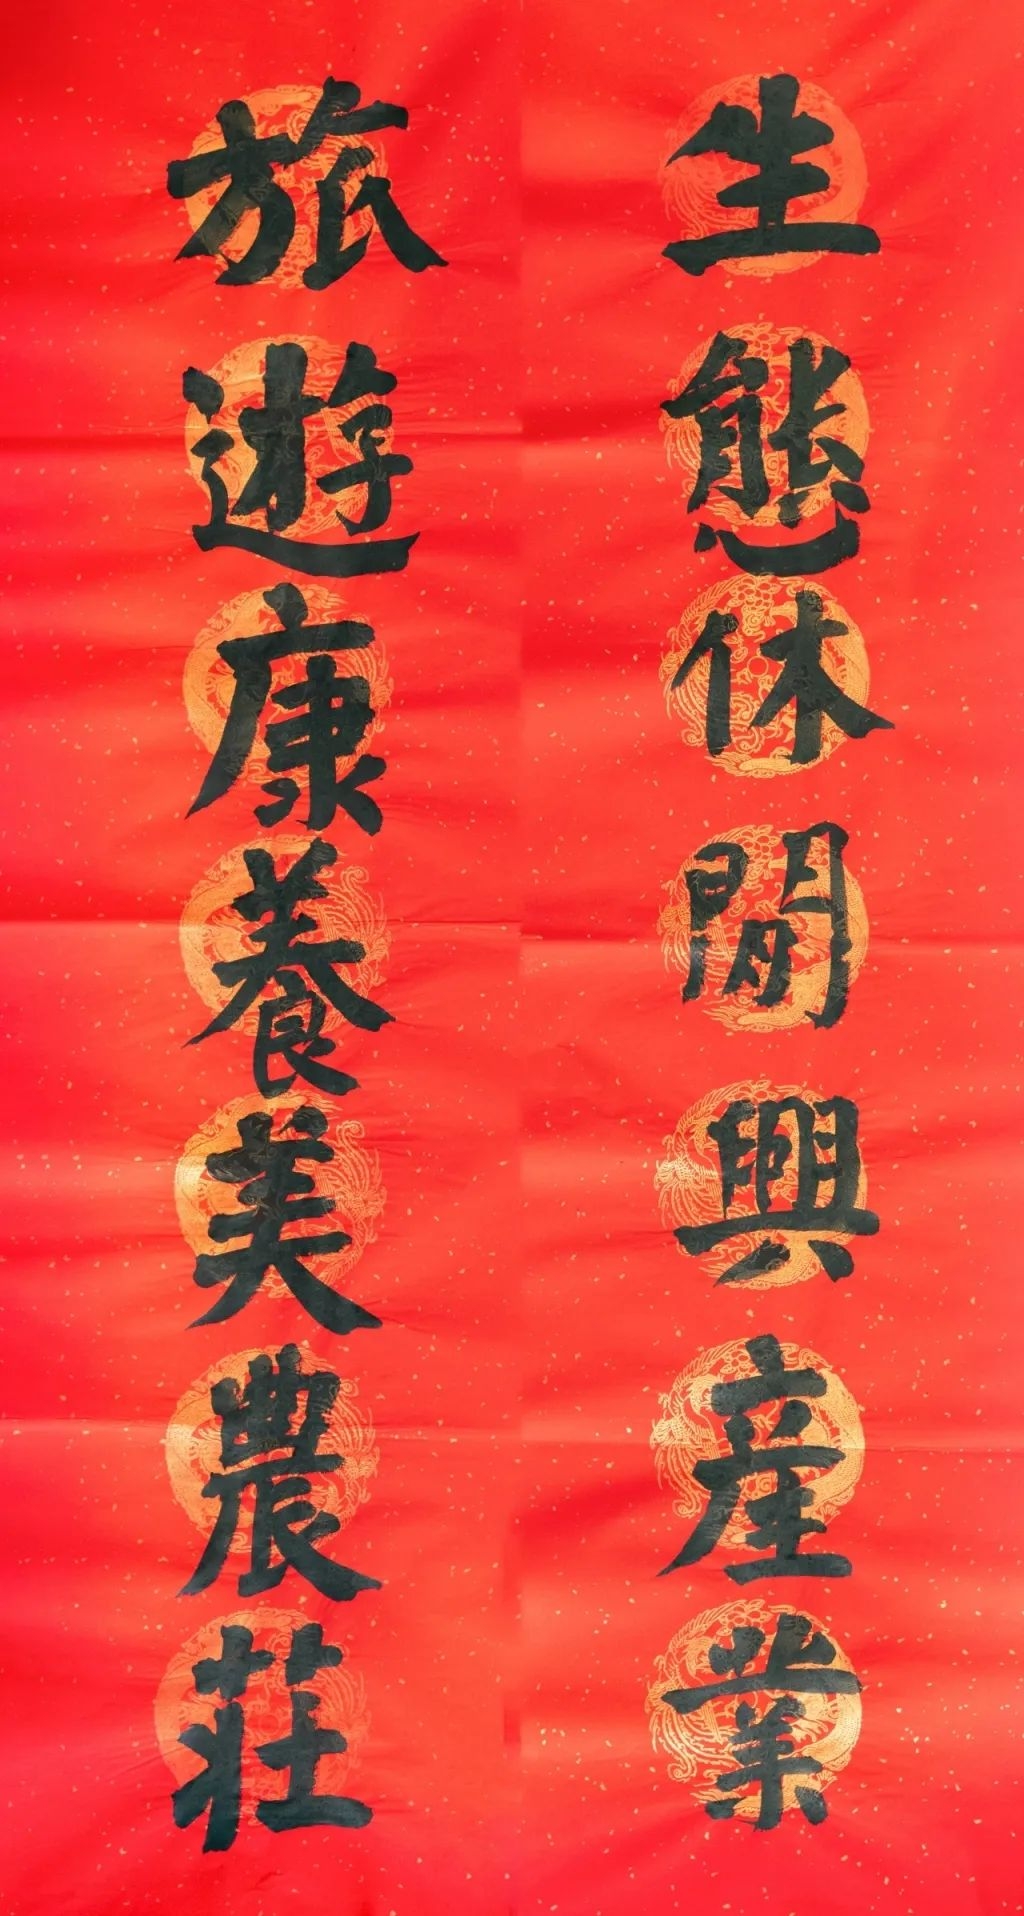 生態休閒興產業
旅遊康養美農莊